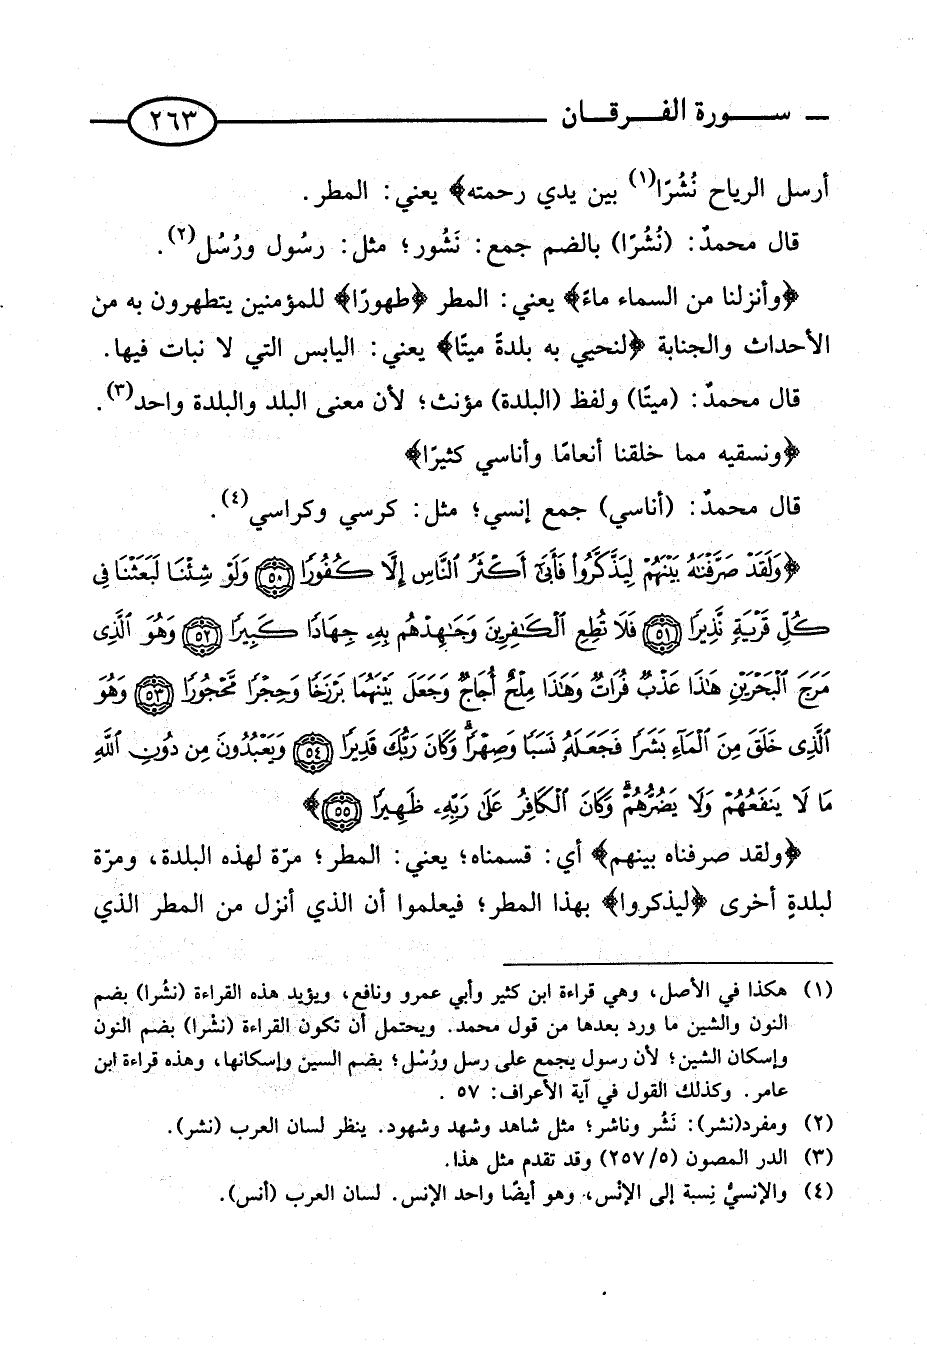 ــ ســـورة الفـرقـان ــ ٢٦٣
أرسل الرياح نُشُرًا(١) بين يدي رحمته﴾ يعني: المطر.
قال محمدٌ: (نُشُرًا) بالضم جمع: نَشُور؛ مثل: رسُول ورُسُل(٢).
﴿وأنزلنا من السماء ماءً﴾ يعني: المطر ﴿طهورًا﴾ للمؤمنين يتطهرون به من
الأحداث والجنابة ﴿لنحيي به بلدةً ميتًا﴾ يعني: اليابس التي لا نبات فيها.
قال محمدٌ: (ميتًا) ولفظ (البلدة) مؤنث؛ لأن معنى البلد والبلدة واحد(٣).
﴿ونسقيه مما خلقنا أنعامًا وأناسي كثيرًا﴾
قال محمدٌ: (أناسي) جمع إنسي؛ مثل: كرسي وكراسي(٤).
﴿وَلَقَدْ صَرَّفْنَٰهُ بَيْنَهُمْ لِيَذَّكَّرُوا۟ فَأَبَىٰٓ أَكْثَرُ ٱلنَّاسِ إِلَّا كُفُورًا ٥٠ وَلَوْ شِئْنَا لَبَعَثْنَا فِى
كُلِّ قَرْيَةٍ نَّذِيرًا ٥١ فَلَا تُطِعِ ٱلْكَٰفِرِينَ وَجَٰهِدْهُم بِهِۦ جِهَادًا كَبِيرًا ٥٢ وَهُوَ ٱلَّذِى
مَرَجَ ٱلْبَحْرَيْنِ هَٰذَا عَذْبٌ فُرَاتٌ وَهَٰذَا مِلْحٌ أُجَاجٌ وَجَعَلَ بَيْنَهُمَا بَرْزَخًا وَحِجْرًا مَّحْجُورًا ٥٣ وَهُوَ
ٱلَّذِى خَلَقَ مِنَ ٱلْمَآءِ بَشَرًا فَجَعَلَهُۥ نَسَبًا وَصِهْرًا ۗ وَكَانَ رَبُّكَ قَدِيرًا ٥٤ وَيَعْبُدُونَ مِن دُونِ ٱللَّهِ
مَا لَا يَنفَعُهُمْ وَلَا يَضُرُّهُمْ ۗ وَكَانَ ٱلْكَافِرُ عَلَىٰ رَبِّهِۦ ظَهِيرًا ٥٥﴾
﴿ولقد صرفناه بينهم﴾ أي: قسمناه؛ يعني: المطر؛ مرّة لهذه البلدة، ومرّة
لبلدةٍ أخرى ﴿ليذكروا﴾ بهذا المطر؛ فيعلموا أن الذي أنزل من المطر الذي
(١) هكذا في الأصل، وهي قراءة ابن كثير وأبي عمرو ونافع، ويؤيد هذه القراءة (نشُرا) بضم
النون والشين ما ورد بعدها من قول محمد. ويحتمل أن تكون القراءة (نشْرا) بضم النون
وإسكان الشين؛ لأن رسول يجمع على رسل ورُسْل؛ بضم السين وإسكانها، وهذه قراءة ابن
عامر. وكذلك القول في آية الأعراف: ٥٧ .
(٢) ومفرد(نشر): نَشُر وناشر؛ مثل شاهد وشهد وشهود. ينظر لسان العرب (نشر).
(٣) الدر المصون (٢٥٧/٥) وقد تقدم مثل هذا.
(٤) والإنسيُّ نِسبة إلى الإنْس، وهو أيضًا واحد الإنس. لسان العرب (أنس).